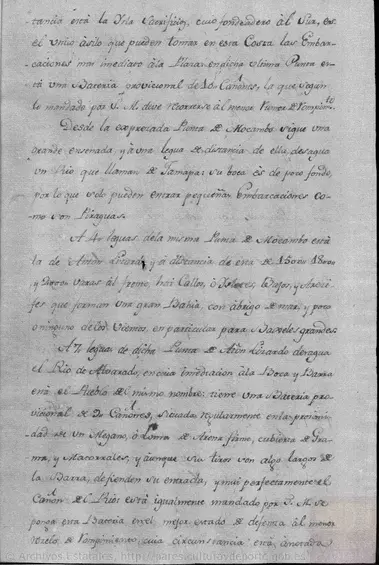 tancia está la Ysla Sacrificios, cuio fondeadero àl Sur, es
el unico àsilo que pueden tomar en esta Costa las Embar-
caciones mas imediato àla Plaza: en dicha ultima Punta es-
tá una Bateria provicional de Cañones, la que segun
lo mandado por S. M. deve reforzarse àl menor Rumor de Rompim.to
Desde la expresada Punta de Mocambo sigue una
grande ensenada, y à una legua de distancia de ella, desagua
un Rio que llaman de Jamapa: su boca es de poco fondo,
por lo que solo pueden entrar pequeñas Embarcaciones co-
mo son Piraguas.
A 4 leguas dela misma Punta de Mocambo está
la de Anton Lizardo, y à distancia de esta de
varas àl frente, hai Callos, ò Yslotes, Bajos, y Arreci-
fes que forman una gran Bahia, con àbrigo de mar, y poco
ò ninguno de los Vientos, en particular para Bajeles grandes.
A 7 leguas de dicha Punta de Anton Lizardo desagua
el Rio de Alvarado, en cuia imediacion àla Boca y Barra
está el Pueblo del mismo nombre: tiene una Bateria pro-
vicional de Cañones, situada regularmente en la proximi-
dad de un Megano, ò Loma de Arena firme, cubierta de Gra-
ma, y Matorrales, y aunque sus tiros son algo largos de
la Barra, defienden su entrada, y mui perfectamente el
Cañon del Rio: está igualmente mandado por S. M. se
ponga esta Bateria en el mejor estado de defensa àl menor
recelo de Rompimiento, cuia circunstancia está
© Archivos Estatales, http://pares.culturaydeporte.gob.es